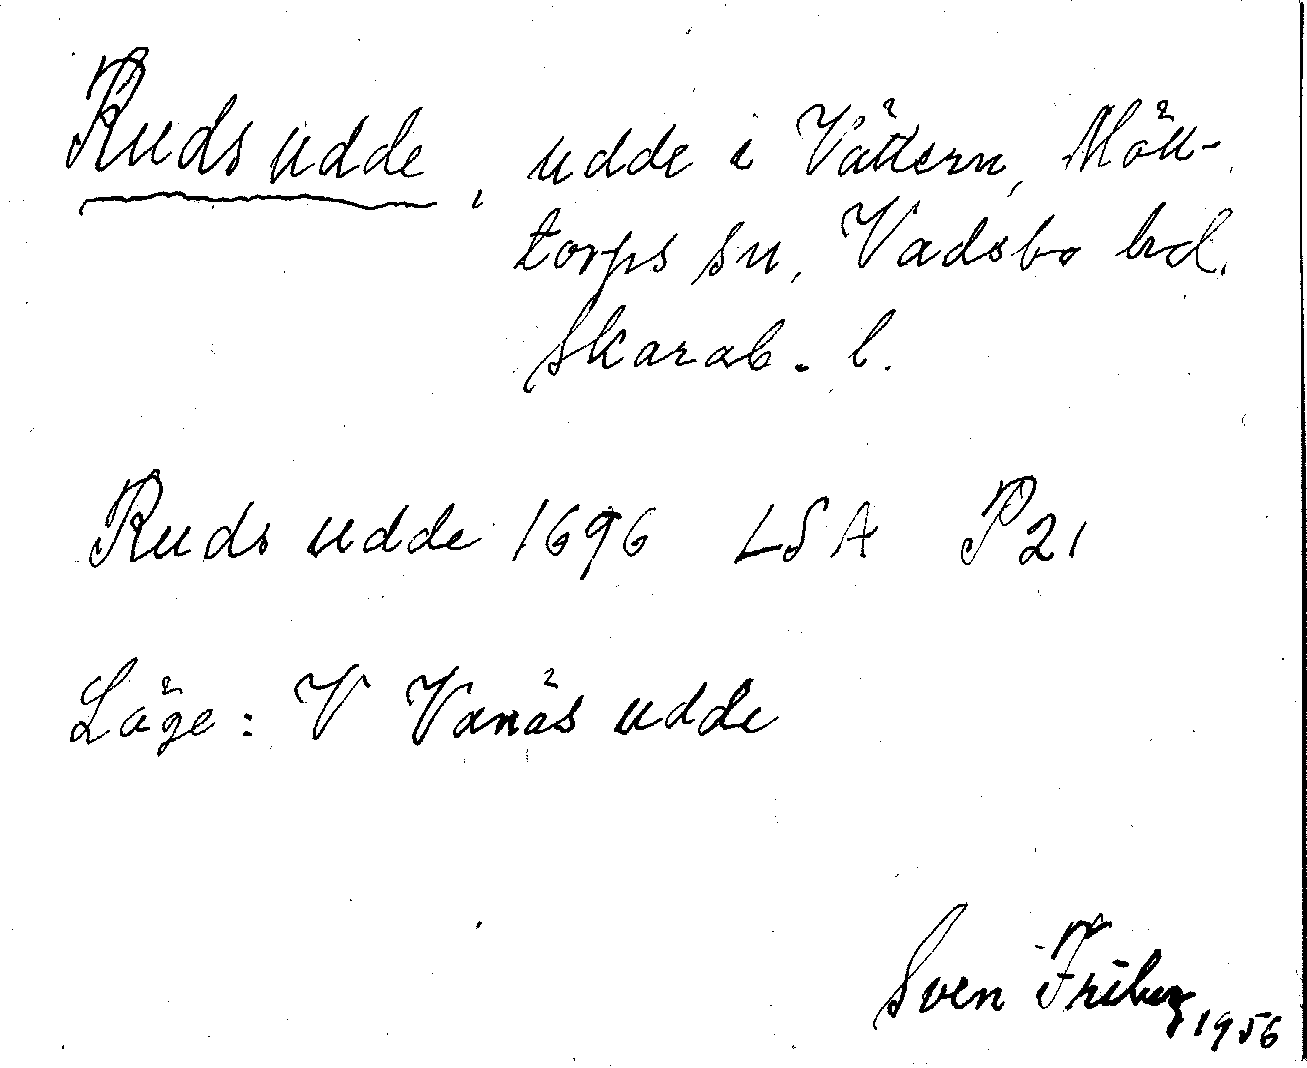 Ruds udde, udde i Vättern, Möll-
torps sn, Vadsbo hd.
Skarab. l.
Ruds udde 1696 LSA P21
Läge: V Vanäs udde
Sven Friberg 1956